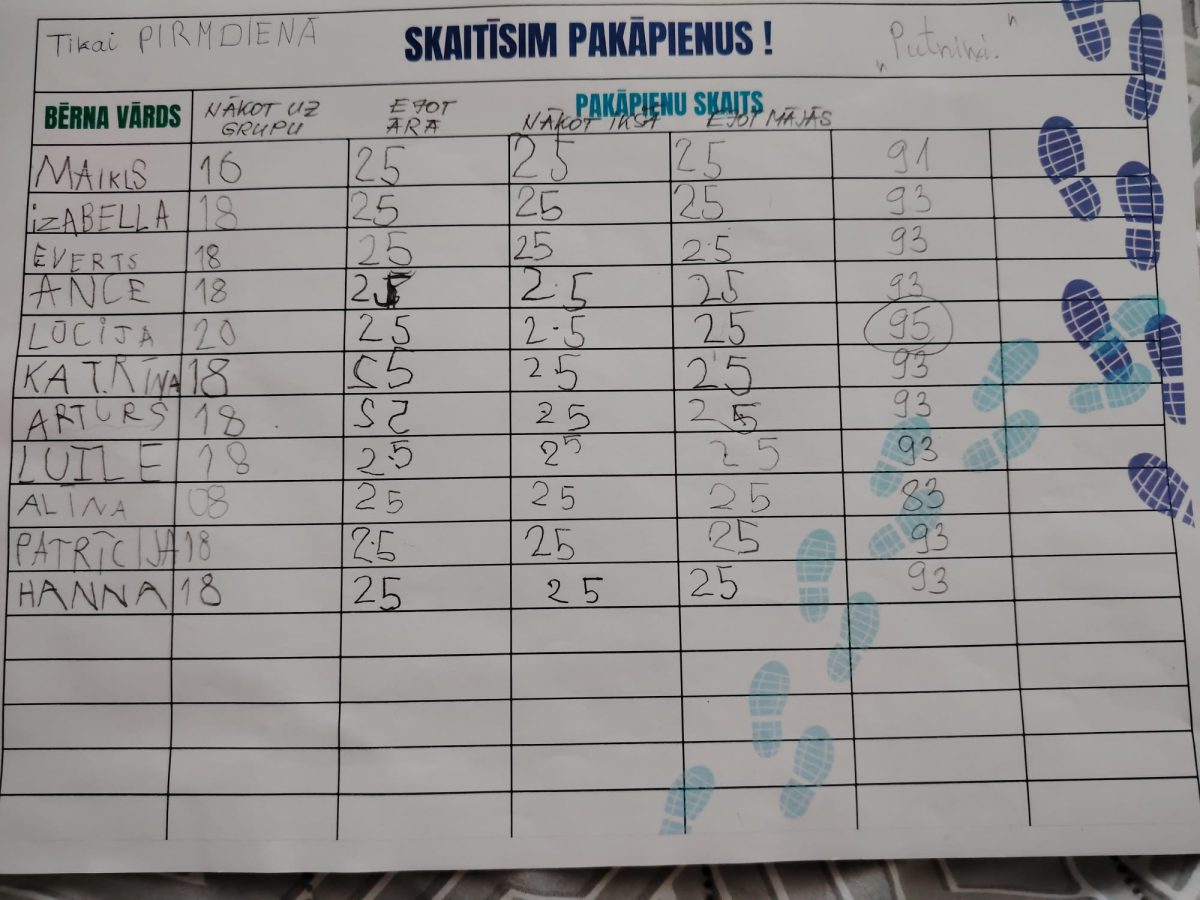 Tikai PIRMDIENĀ SKAITĪSIM PAKĀPIENUS ! "Putniņi."
BĒRNA VĀRDS PAKĀPIENU SKAITS
NĀKOT UZ GRUPU EJOT ĀRĀ NĀKOT IKŠĀ EJOT MĀJĀS
MAIKLS 16 25 25 25 91
iZABELLA 18 25 25 25 93
EVERTS 18 25 25 25 93
ANCE 18 25 25 25 93
LŪCIJA 20 25 25 25 95
KATRĪNA 18 25 25 25 93
ARTURS 18 25 25 25 93
LUILE 18 25 25 25 93
ALĪNA 08 25 25 25 83
PATRĪCIJA 18 25 25 25 93
HANNA 18 25 25 25 93